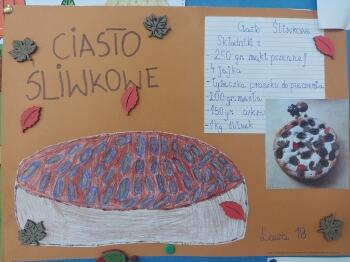 CIASTO
ŚLIWKOWE
Ciasto Śliwkowe
Składniki:
250 gr mąki pszennej
- 4 jajka
- łyżeczka proszku do pieczenia
- 200 gr masła
- 150 gr cukru
- 1kg śliwek
Laura 1B